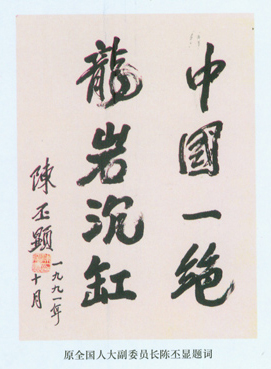 中國一绝
龍岩沉缸
陳丕顕
一九九一年
十月
原全国人大副委员长陈丕显题词